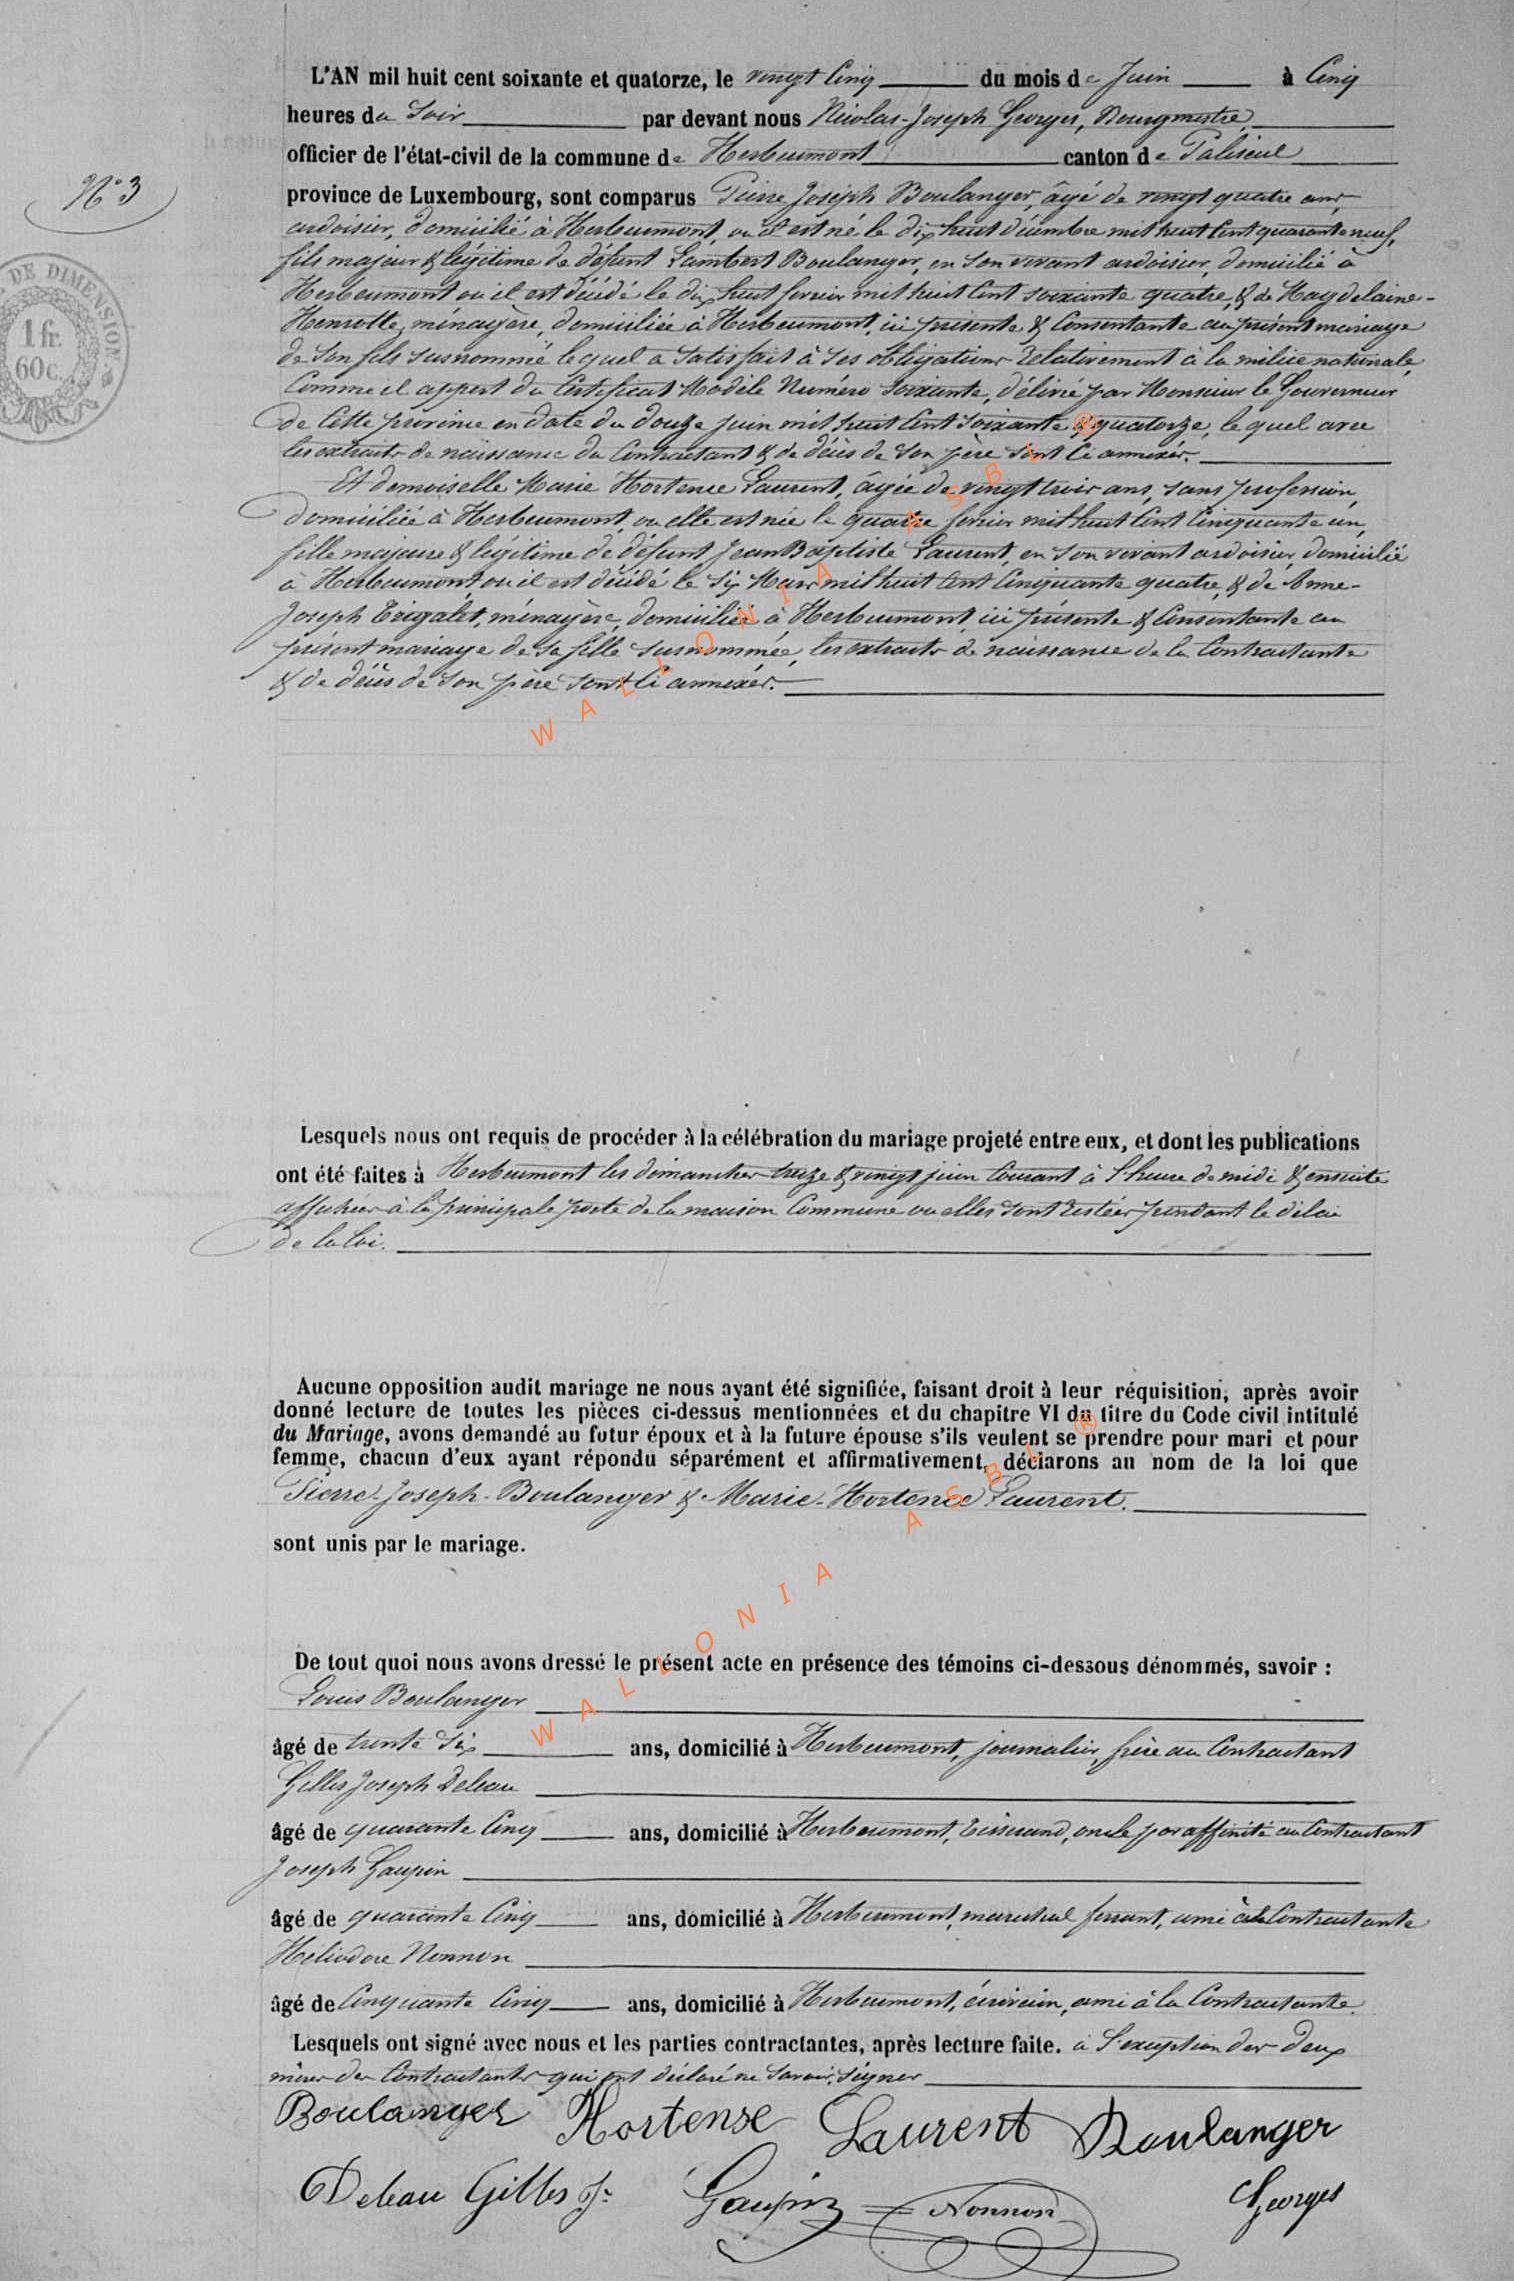 L'AN mil huit cent soixante et quatorze, le vingt Cinq du mois de Juin à Cinq
heures du Soir par devant nous Nicolas-Joseph Georges, Bourgmestre,
officier de l'état-civil de la commune de Herbeumont canton de Paliseul
N° 3
province de Luxembourg, sont comparus Pierre Joseph Boulanger, âgé de vingt quatre ans,
ardoisier, domicilié à Herbeumont, où il est né le dix huit décembre mil huit Cent quarante neuf,
fils majeur & légitime de défunt Lambert Boulanger, en son vivant ardoisier, domicilié à
Herbeumont où il est décédé le dix huit fevrier mil huit Cent soixante quatre, & de Magdelaine-
DE DIMENSION.
1 fr.
60c.
Henrotte, ménagère, domiciliée à Herbeumont, ici présente & Consentante au présent mariage
de Son fils susnommé lequel a satisfait à ses obligations relativement à la milice nationale,
Comme il appert du Certificat Modèle Numéro Soixante, délivré par Monsieur le Gouverneur
de Cette province en date du douze juin mil huit Cent soixante & quatorze, le quel avec
les extraits de naissance du Contractant & de décès de Son père Sont Ci annexés.
Et demoiselle Marie Hortence Laurent, âgée de vingt trois ans, sans profession,
domiciliée à Herbeumont, où elle est née le quatre fevrier mil huit Cent Cinquante un,
fille majeure & légitime de défunt Jean Baptiste Laurent, en son vivant ardoisier, domicilié
à Herbeumont, où il est décédé le Six Mars mil huit Cent Cinquante quatre, & de Anne-
Joseph Trigalet, ménagère, domiciliée à Herbeumont, ici présente & Consentante au
présent mariage de Sa fille Susnommée, les extraits de naissance de la Contractante
& de décès de Son père Sont Ci annexés.
WALLONIA ASBL ®
Lesquels nous ont requis de procéder à la célébration du mariage projeté entre eux, et dont les publications
ont été faites à Herbeumont les dimanches treize & vingt juin Courant à l'heure de midi & ensuite
affichées à la principale porte de la maison Commune où elles sont restées pendant le délai
de la loi.
Aucune opposition audit mariage ne nous ayant été signifiée, faisant droit à leur réquisition, après avoir
donné lecture de toutes les pièces ci-dessus mentionnées et du chapitre VI du titre du Code civil intitulé
du Mariage, avons demandé au futur époux et à la future épouse s'ils veulent se prendre pour mari et pour
femme, chacun d'eux ayant répondu séparément et affirmativement, déclarons au nom de la loi que
Pierre-Joseph-Boulanger & Marie-Hortence Laurent.
sont unis par le mariage.
WALLONIA ASBL ®
De tout quoi nous avons dressé le présent acte en présence des témoins ci-dessous dénommés, savoir :
Louis Boulanger
âgé de trente Six ans, domicilié à Herbeumont, journalier, frère au Contractant
Gilles Joseph Deleau
âgé de quarante Cinq ans, domicilié à Herbeumont, Tisserand, oncle par affinité au Contractant
Joseph Gaupin
âgé de quarante Cinq ans, domicilié à Herbeumont, marechal ferrant, ami à la Contractante
Héliodore Nonnon
âgé de Cinquante Cinq ans, domicilié à Herbeumont, écrivain, ami à la Contractante.
Lesquels ont signé avec nous et les parties contractantes, après lecture faite. à l'exception des deux
mères des Contractants qui ont déclaré ne Savoir Signer
Boulanger Hortense Laurent Boulanger
Deleau Gilles J. Gaupin Nonnon Georges